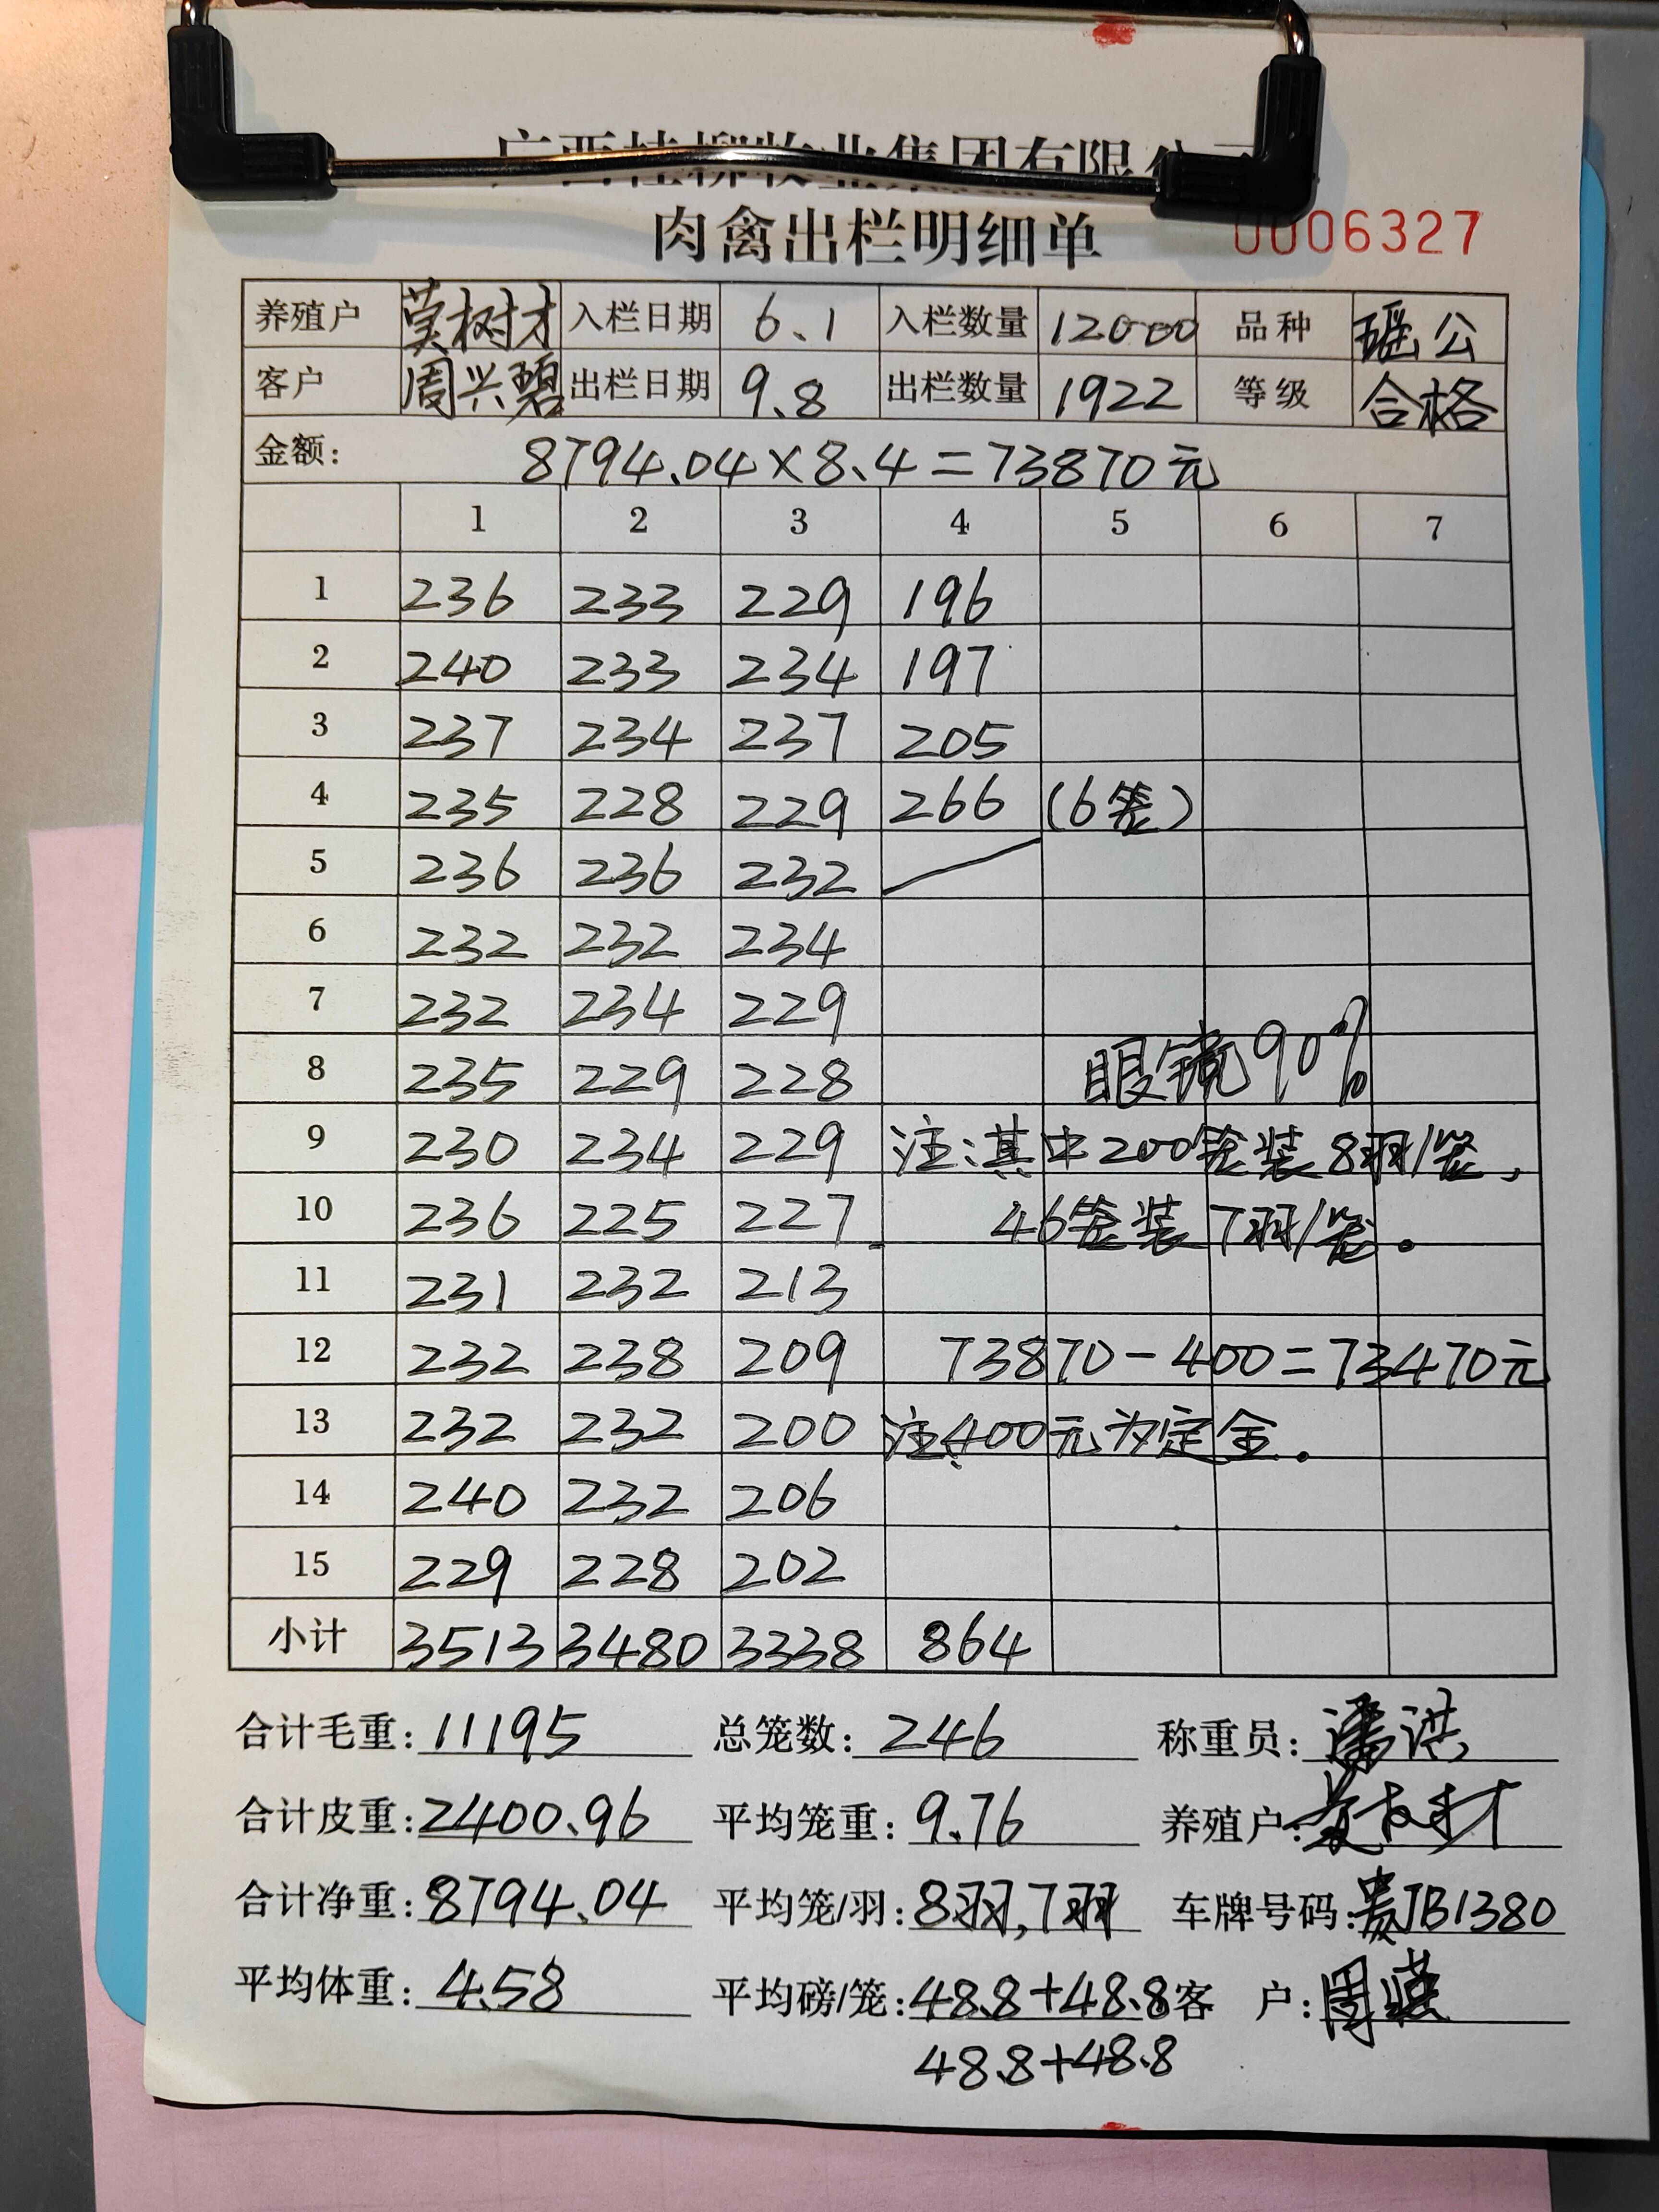 广西桂柳牧业集团有限公司
肉禽出栏明细单 0006327
养殖户 莫树才 入栏日期 6.1 入栏数量 12000 品种 瑶公
客户 周兴碧 出栏日期 9.8 出栏数量 1922 等级 合格
金额: 8794.04×8.4=73870元
1 2 3 4 5 6 7
1 236 233 229 196
2 240 233 234 197
3 237 234 237 205
4 235 228 229 266 (6笼)
5 236 236 232
6 232 232 234
7 232 234 229
眼镜90%
8 235 229 228
9 230 234 229 注:其中200笼装8羽/笼,
10 236 225 227 46笼装7羽/笼。
11 231 232 213
12 232 238 209 73870-400=73470元
13 232 232 200 注:400元为定金。
14 240 232 206
15 229 228 202
小计 3513 3480 3338 864
合计毛重: 11195 总笼数: 246 称重员: 潘洪
合计皮重: 2400.96 平均笼重: 9.76 养殖户: 莫树才
合计净重: 8794.04 平均笼/羽: 8羽,7羽 车牌号码: 贵JB1380
平均体重: 4.58 平均磅/笼: 48.8+48.8 客户:
48.8+48.8